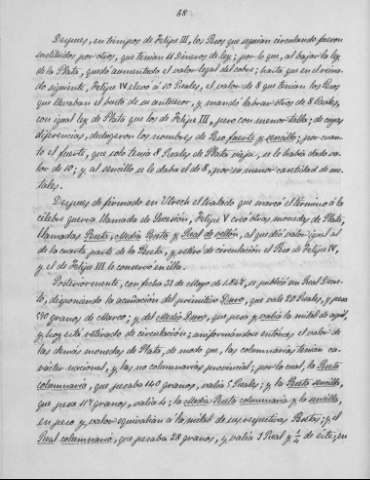 48
Despues, en tiempos de Felipe III, los Pesos que seguian circulando fueron
sustituidos por otros, que tenian 11 Dineros de ley; por lo que, al bajar la ley
de la Plata, quedó aumentado el valor legal del cobre; hasta que en el reina-
do siguiente, Felipe IV elevó a 10 Reales, el valor de 8 que tenian los Pesos
que llevaban el busto de su antecesor, y mandó labrar otros de 8 Reales,
con igual ley de Plata que los de Felipe III, pero con menor talla; de cuyas
diferencias, dedujeron los nombres de Peso fuerte y sencillo; por cuan-
to el fuerte, que solo tenia 8 Reales de Plata vieja, se le habia dado va-
lor de 10; y al sencillo se le daba el de 8, por su menor cantidad de me-
tales.
Despues de firmado en Utrech el tratado que marcó el término á la
célebre guerra llamada de Sucesión, Felipe V creó otras monedas de Plata,
llamadas Peseta, Media Peseta y Real de vellón, al que dió valor igual al
de la cuarta parte de la Peseta, y retiró de circulación el Peso de Felipe IV,
y el de Felipe III le conservó en ella.
Posteriormente, con fecha 31 de Mayo de se publicó un Real Decre-
to, disponiendo la acuñación del primitivo Duro, que vale 20 Reales, y pesa
granos de Marco; y del Medio Duro, que pesa y valia la mitad de aquel,
y hoy está retirado de circulación; uniformándose entónces el valor de
las demás monedas de Plata, de modo que, las columnarias tenian ca-
rácter nacional, y las no columnarias provincial; por lo cual, la Peseta
columnaria, que pesaba 140 granos, valia 5 Reales; y la Peseta sencilla,
que pesa granos, valia 4; la Media Peseta columnaria y la sencilla,
en peso y valor equivalian á la mitad de sus respectivas Pesetas; y el
Real columnario, que pesaba 28 granos, y valia 1 Real y ¼ de éste; en